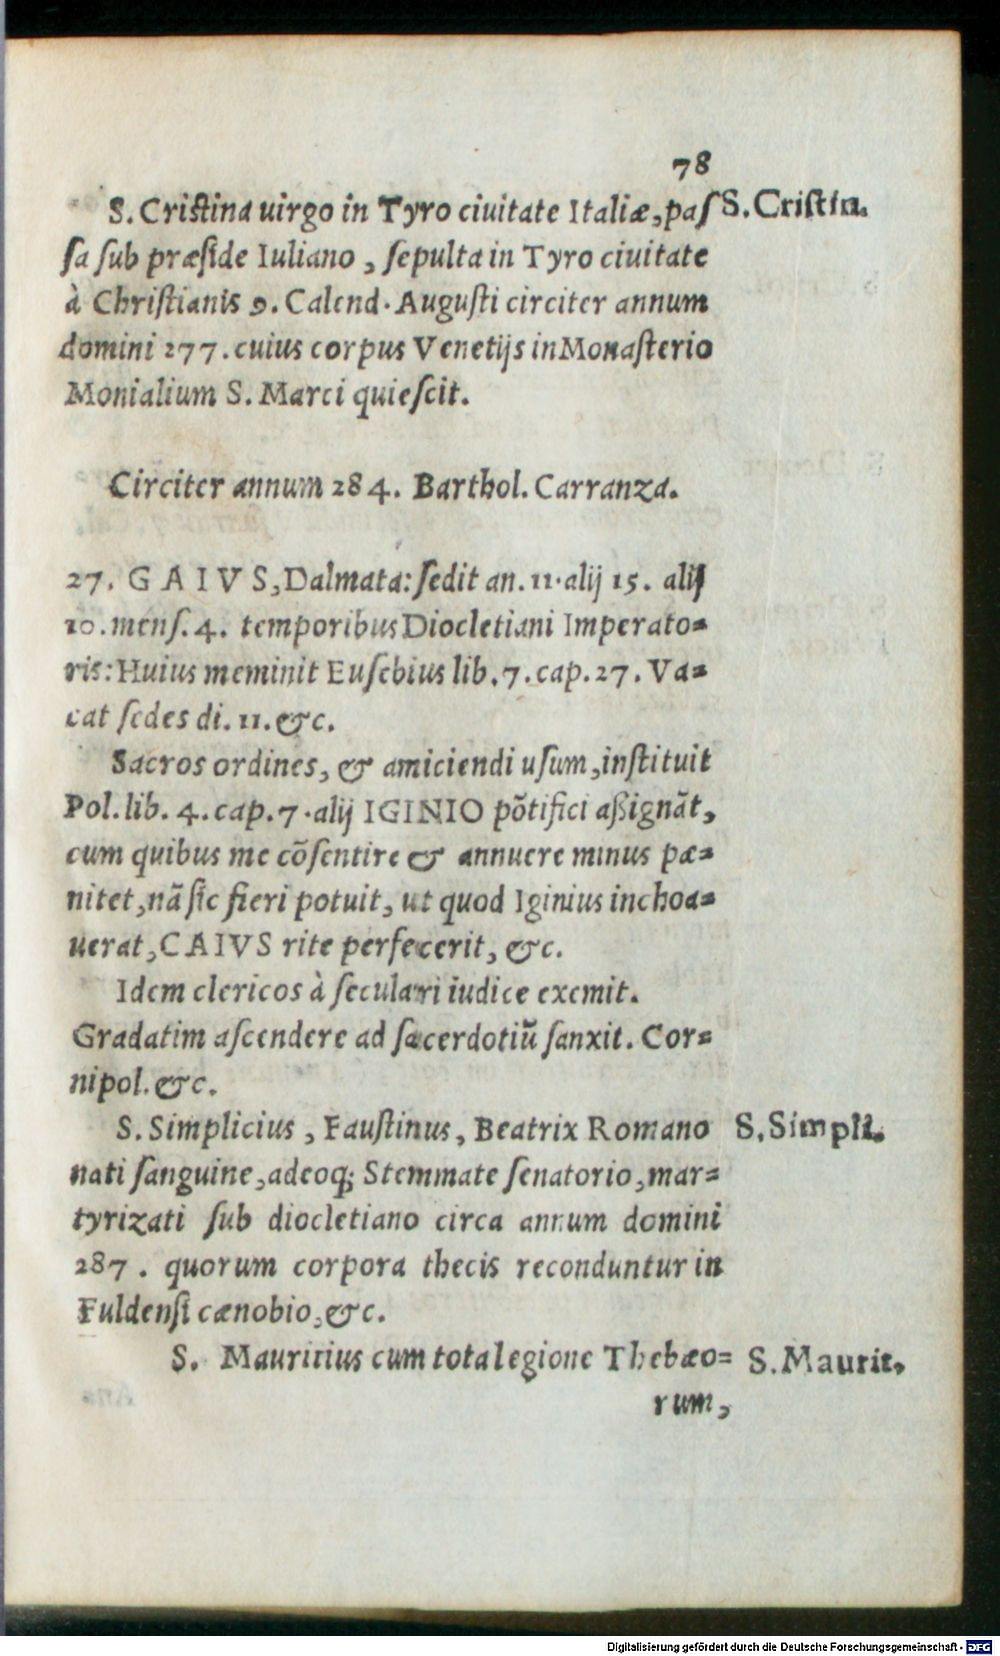 78
S. Cristina uirgo in Tyro ciuitate Italiæ, pas S. Cristin.
sa sub præside Iuliano, sepulta in Tyro ciuitate
à Christianis 9. Calend. Augusti circiter annum
domini 277. cuius corpus Venetijs in Monasterio
Monialium S. Marci quiescit.
Circiter annum 284. Barthol. Carranza.
27. GAIVS, Dalmata: sedit an. 11. alij 15. alij
10. mens. 4. temporibus Diocletiani Imperato=
ris: Huius meminit Eusebius lib. 7. cap. 27. Va=
cat sedes di. 11. &c.
Sacros ordines, & amiciendi usum, instituit
Pol. lib. 4. cap. 7. alij IGINIO põtifici aßignãt,
cum quibus me cõsentire & annuere minus pæ=
nitet, nã sic fieri potuit, ut quod Iginius inchoa=
uerat, CAIVS rite perfecerit, &c.
Idem clericos à seculari iudice exemit.
Gradatim ascendere ad sacerdotiũ sanxit. Cor=
nipol. &c.
S. Simplicius, Faustinus, Beatrix Romano S. Simpli.
nati sanguine, adeoq; Stemmate senatorio, mar=
tyrizati sub diocletiano circa annum domini
287. quorum corpora thecis reconduntur in
Fuldensi cænobio, &c.
S. Mauritius cum tota legione Thebæo= S. Maurit.
rum,
Digitalisierung gefördert durch die Deutsche Forschungsgemeinschaft - DFG